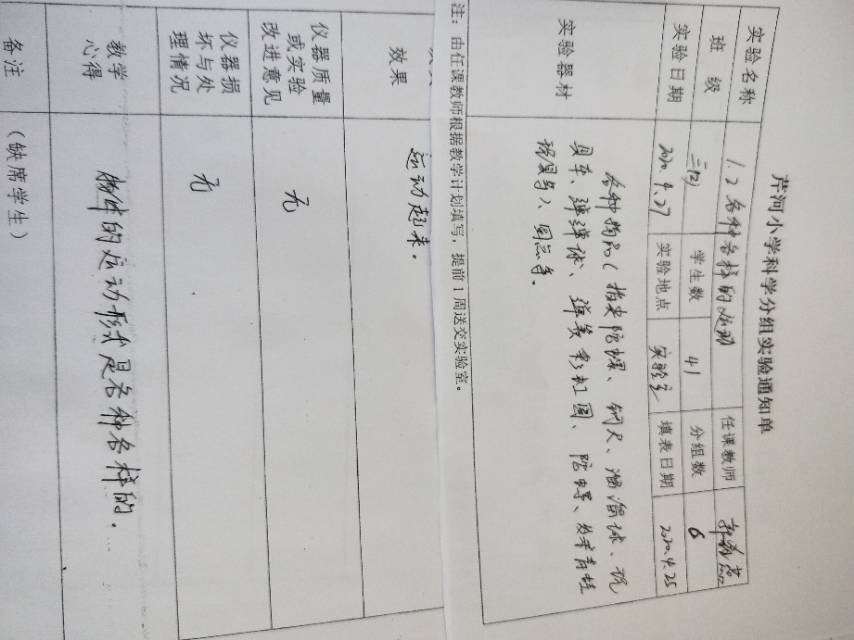 芹河小学科学分组实验通知单
实验名称 1.2各种各样的运动 任课教师
班级 三(2) 学生数 41 分组数 6
实验日期 2020.4.27 实验地点 实验室 填表日期 2020.4.25
实验器材 各种物品(指尖陀螺、钢尺、溜溜球、玩
具车、弹弹球、弹簧彩虹圈、陀螺、发条青蛙
注：由任课教师根据教学计划填写，提前1周送交实验室。
效果 运动起来。
仪器质量
或实验
改进意见 无
仪器损
坏与处
理情况 无
教学
心得 物体的运动形式是各种各样的.
备注 (缺席学生)